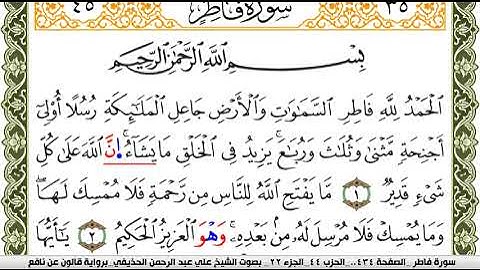 ٤٥ سورة فاطر ٣٥
بِسْمِ اللَّهِ الرَّحْمَٰنِ الرَّحِيمِ
الْحَمْدُ لِلَّهِ فَاطِرِ السَّمَٰوَٰتِ وَالْأَرْضِ جَاعِلِ الْمَلَٰٓئِكَةِ رُسُلًا أُوْلِىٓ
أَجْنِحَةٍ مَّثْنَىٰ وَثُلَٰثَ وَرُبَٰعَ يَزِيدُ فِى الْخَلْقِ مَا يَشَآءُ اِ۪نَّ اللَّهَ عَلَىٰ كُلِّ
شَىْءٍ قَدِيرٌ ١ مَّا يَفْتَحِ اللَّهُ لِلنَّاسِ مِن رَّحْمَةٍ فَلَا مُمْسِكَ لَهَا
وَمَا يُمْسِكْ فَلَا مُرْسِلَ لَهُۥ مِنۢ بَعْدِهِۦ وَهْوَ الْعَزِيزُ الْحَكِيمُ ٢ يَٰٓأَيُّهَا
سورة فاطر _الصفحة ٤٣٤...الحزب ٤٤_الجزء ٢٢ - بصوت الشيخ علي عبد الرحمن الحذيفي_برواية قالون عن نافع